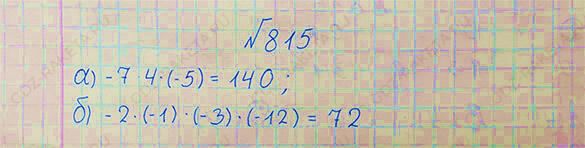 №815
а) -7·4·(-5) = 140;
б) -2·(-1)·(-3)·(-12) = 72